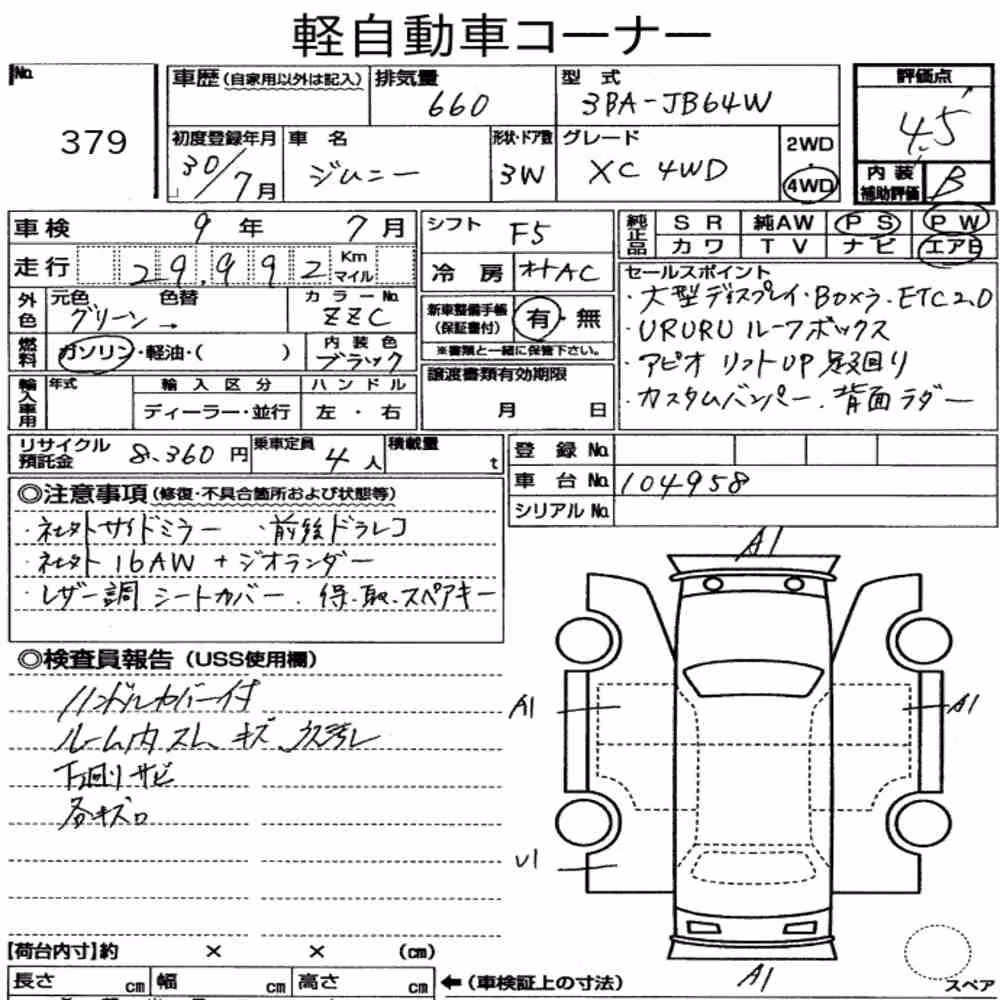 軽自動車コーナー
No.
379
車歴(自家用以外は記入)
排気量
660
型 式
3BA-JB64W
評価点
4.5
初度登録年月
30/7月
車 名
ジムニー
形状・ドア数
3W
グレード
XC 4WD
2WD
・
4WD
内 装
補助評価
B
車検
9 年 7 月
シフト
F5
純正品
S R
純AW
P S
P W
カワ
T V
ナビ
エアB
走行
29,992
Km
マイル
冷 房
オートAC
セールスポイント
・大型ディスプレイ・Boxラ・ETC2.0
・URURU ルーフボックス
・アピオ リフトUP 足回り
・カスタムバンパー・背面ラダー
外色
元色
グリーン→
色替
カラーNo.
ZZC
新車整備手帳
(保証書付)
有・無
※書類と一緒に保管下さい。
燃料
ガソリン・軽油・( )
内 装 色
ブラック
譲渡書類有効期限
月 日
輸入車用
年式
輸 入 区 分
ディーラー・並行
ハ ン ド ル
左 ・ 右
リサイクル
預託金
8,360 円
乗車定員
4 人
積載量
t
登 録 No.
車 台 No.
104958
シリアル No.
◎注意事項(修復・不具合箇所および状態等)
・社外サイドミラー ・前後ドラレコ
・社外 16AW + ジオランダー
・レザー調 シートカバー・保・取・スペアキー
◎検査員報告(USS使用欄)
ハンドルカバー付
ルーム内スレ キズ 汚れ
下廻りサビ
各キズ
A1
A1
A1
U1
A1
スペア
【荷台内寸】約 × × (cm)
長さ cm
幅 cm
高さ cm
←(車検証上の寸法)